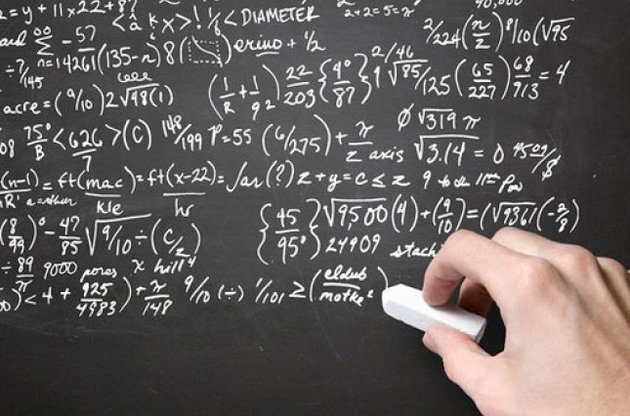 = y + 11x22 + 8? â x > ! 1/6 < DIAMETER 2+2=5 90,000
and ∞ -57 / n=14261 (135-n) 8 + 1/2 2/224 (π/z) 8/10 (√95
÷ ?/145 acre = (9/10) 2√98(1) (1/R + 1/92) 22/203 {4°/87} 9 2/46 √85/125 (65/227) 68/713 = 4
08 75°/B < 626/7 > (C) 148/199 P=55 (6/275) + π/z axis Ø √319 π / √3.14 = 0
(n-1) = ft(mac)/kle = ft(x-22)/hr = (?) z + y = c ≤ z 9 to the 11th Pow
(8/99)° - 47/85 √9/10 ÷ (C/z) {45/95°} √9,500 (4) + (9/10) = (√9361 (-2/8) 24909
÷ 89/π 9000 pores x hill 4 stach
) < 4 + 925/4983) + π/148 9/10 (÷) 1/101 ≥